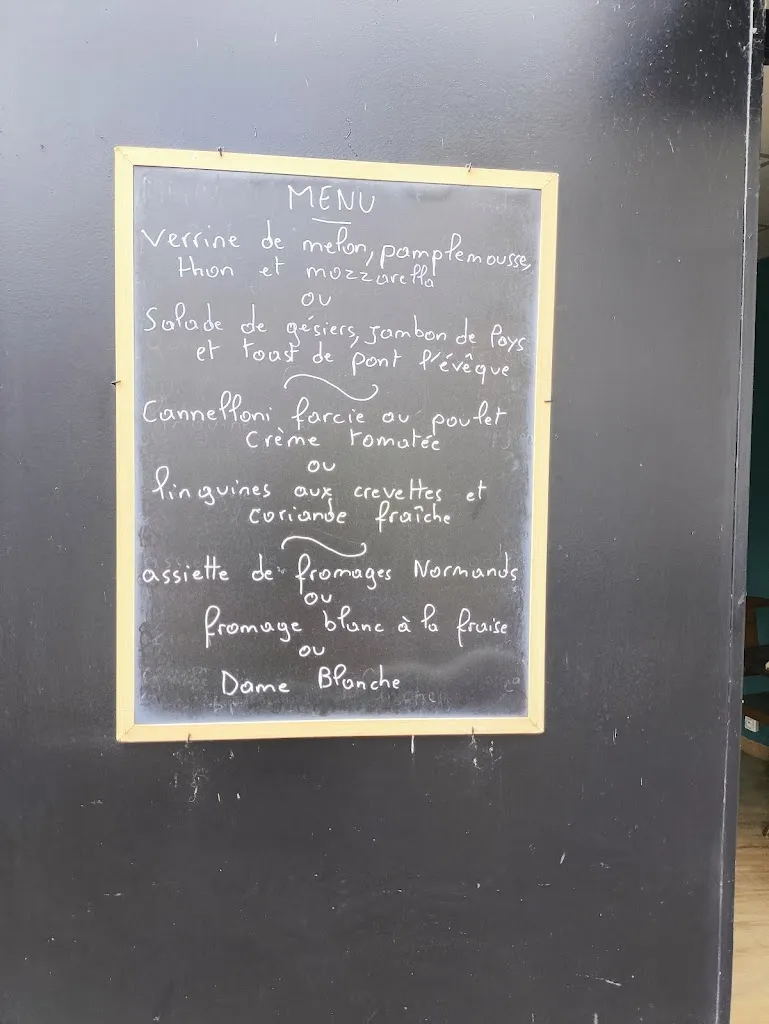 MENU
Verrine de melon, pamplemousse,
thon et mozzarella
ou
Salade de gésiers, jambon de Pays
et toast de pont l'évêque
Cannelloni farcie au poulet
Crème tomatée
ou
linguines aux crevettes et
coriande fraîche
assiette de fromages Normands
ou
fromage blanc à la fraise
ou
Dame Blanche